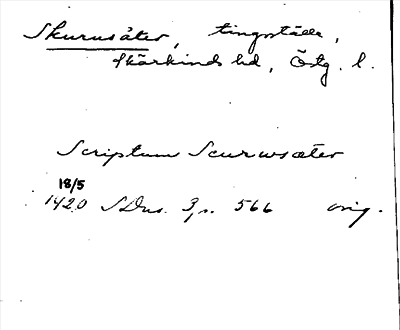 Skurusäter, tingställe,
Skärkinds hd, Östg. l.
Scriptum Scurwsæter
18/5
1420 SDns. 3, s. 566 orig.